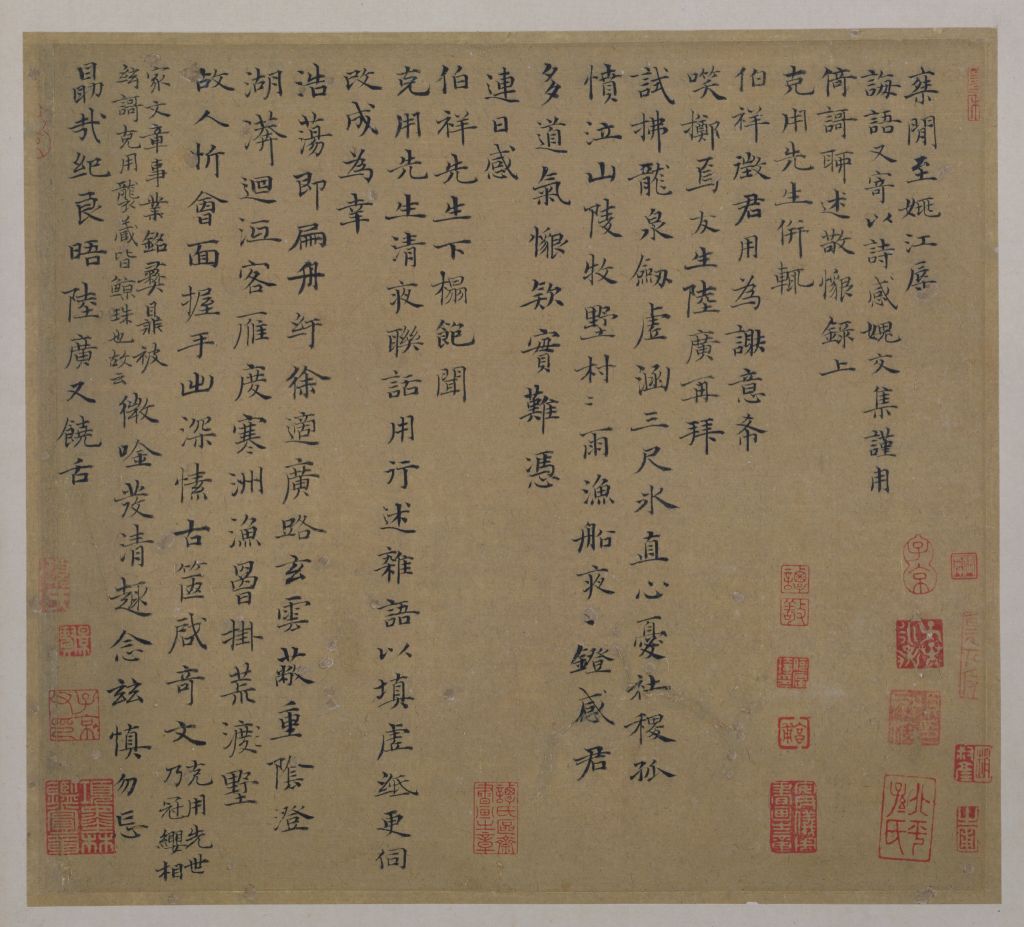 閒至姚江辱
誨語又寄以詩感媿交集謹用
倚謌聊述敬懷錄上
克用先生併輒
伯祥徵君用為謝意希
咲擲焉友生陸廣再拜
試拂龍泉劒虛涵三尺氷直心憂社稷孤
憤泣山陵牧墅村〻雨漁船夜〻鐙感君
多道氣懷欵實難憑
連日感
伯祥先生下榻飽聞
克用先生清夜聯話用行述雜語以填虛紙更伺
改成為幸
浩蕩即扁舟紆徐適廣路玄雲蔽重陰澄
湖漭迴沍客雁度寒洲漁罾掛荒渡墅
故人忻會面握手出深愫古篋啟奇文
克用先世
乃冠纓相
家文章事業銘彝鼎被
謌克用襲藏皆鯨珠也故云
徵唫發清趣念茲慎勿忘
勗哉紀良晤陸廣又饒舌
子京
北平孫氏
子京父印
項墨林鑑賞章